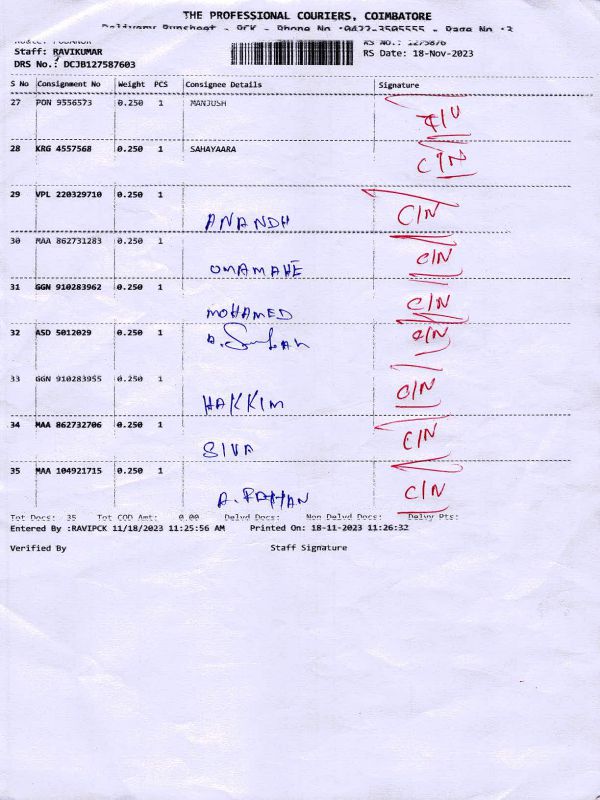 THE PROFESSIONAL COURIERS, COIMBATORE
Staff: RAVIKUMAR
RS No.: 1275876
RS Date: 18-Nov-2023
DRS No.: DCJB127587603
S No Consignment No Weight PCS Consignee Details Signature
27 PON 9556573 0.250 1 MANJUSH
28 KRG 4557568 0.250 1 SAHAYAARA C/N
29 VPL 220329710 0.250 1 ANANDH C/N
30 MAA 862731283 0.250 1 UMAMAHE C/N
31 GGN 910283962 0.250 1 MOHAMED C/N
32 ASD 5012029 0.250 1 C/N
33 GGN 910283955 0.250 1 HAKKIM C/N
34 MAA 862732706 0.250 1 SIVA C/N
35 MAA 104921715 0.250 1 C/N
Tot Docs: 35 Tot COD Amt: 0.00 Delvd Docs: Non Delvd Docs: Delvy Pts:
Entered By :RAVIPCK 11/18/2023 11:25:56 AM Printed On: 18-11-2023 11:26:32
Verified By Staff Signature